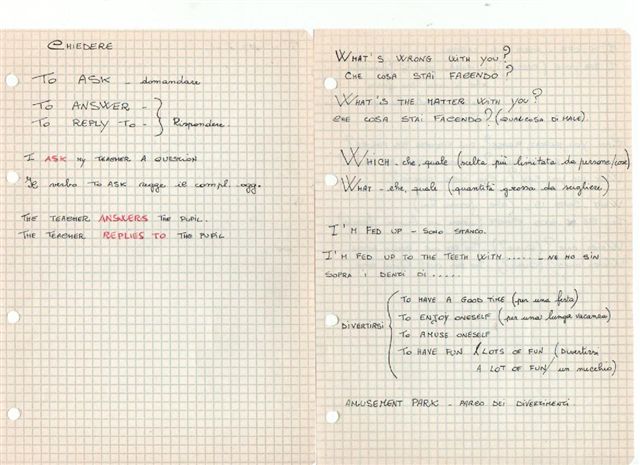 CHIEDERE
TO ASK - domandare
TO ANSWER -
TO REPLY TO - } Rispondere
I ASK MY TEACHER A QUESTION
Il verbo TO ASK regge il compl. ogg.
THE TEACHER ANSWERS THE PUPIL.
THE TEACHER REPLIES TO THE PUPIL
WHAT'S WRONG WITH YOU?
CHE COSA STAI FACENDO?
WHAT'S THE MATTER WITH YOU?
CHE COSA STAI FACENDO? (QUALCOSA DI MALE).
WHICH - che, quale (scelta più limitata da persone/cose)
WHAT - che, quale (quantità grossa da scegliere)
I'M FED UP - SONO STANCO.
I'M FED UP TO THE TEETH WITH ..... - NE HO SIN
SOPRA I DENTI DI .....
TO HAVE A GOOD TIME (per una festa)
TO ENJOY ONESELF (per una lunga vacanza)
DIVERTIRSI
TO AMUSE ONESELF
TO HAVE FUN / LOTS OF FUN (Divertirsi
A LOT OF FUN / un mucchio)
AMUSEMENT PARK - PARCO DEI DIVERTIMENTI.